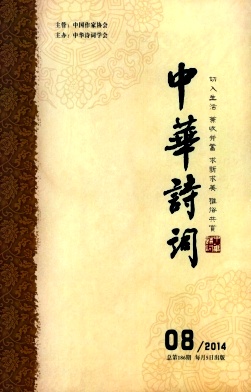 主管：中国作家协会
主办：中华诗词学会
切入生活 兼收并蓄 求新求美 雅俗共赏
中華詩词
08/2014
总第186期 每月5日出版